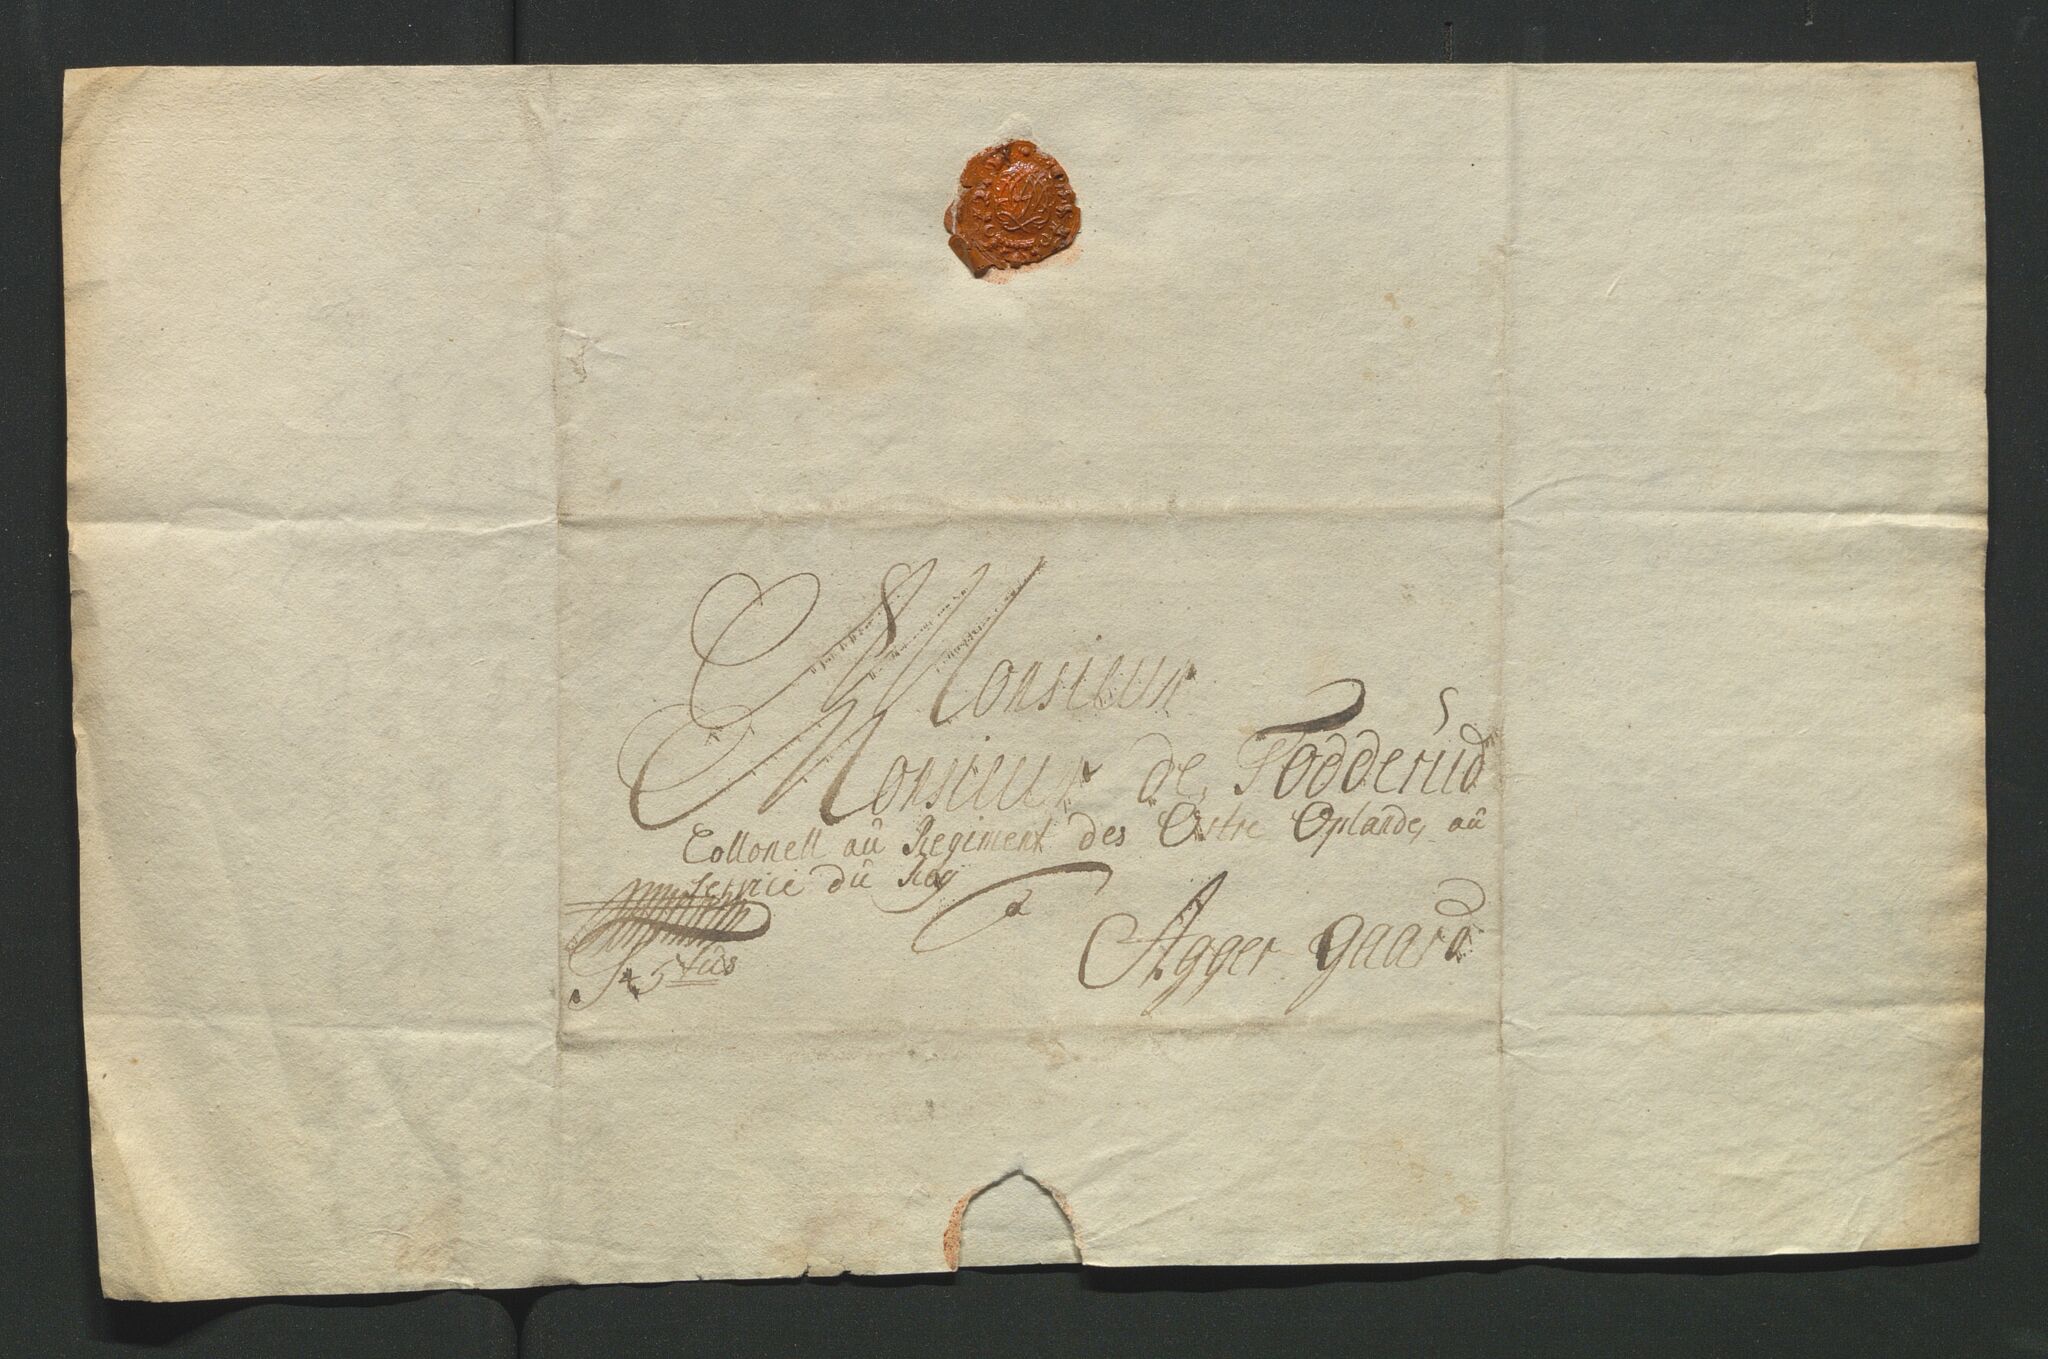 Monsieur
Monsieur de Fodderud
Collonell au Regiment des Østre Oplandes au
service du Roy
a
Agger gaard